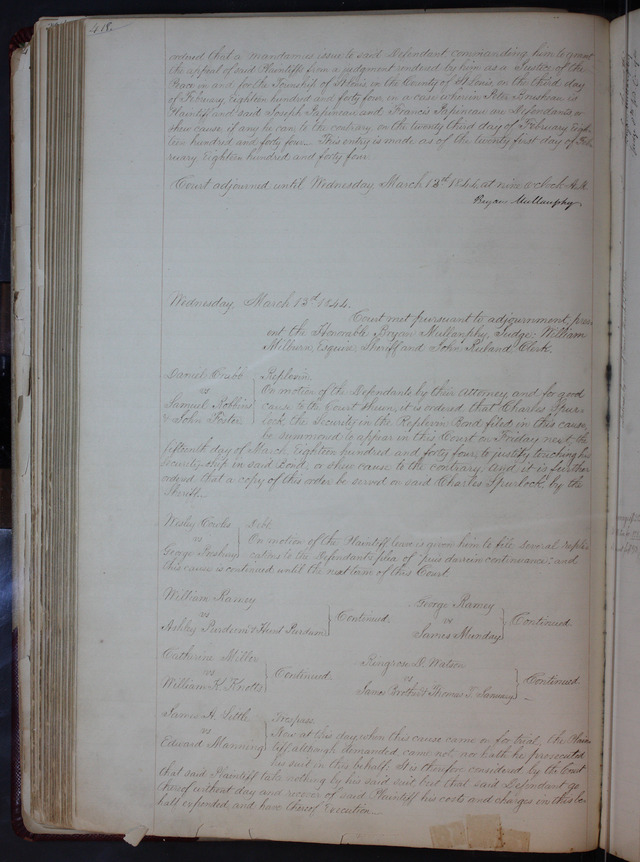 418.
ordered that a mandamus issue to said Defendant commanding him to grant
the appeal of said Plaintiffs from a judgment rendered by him as a Justice of the
Peace in and for the Township of St. Louis in the County of St. Louis on the third day
of February Eighteen hundred and forty four in a case wherein Peter is
Plaintiff and said Joseph Papineau and Francis Papineau are Defendants or
show cause if any he can to the contrary on the twenty third day of February Eigh-
teen hundred and forty four. This entry is made as of the twenty first day of Feb-
ruary Eighteen hundred and forty four.
Court adjourned until Wednesday, March 13th 1844 at nine o'clock A.M.
Bryan Mullanphy.
Wednesday, March 13th 1844.
Court met pursuant to adjournment, pres-
ent the Honorable Bryan Mullanphy Judge, William
Milburn, Esquire, Sheriff and John Ruland, Clerk.
Daniel
vs
Samuel Robbins
& John Foster
Replevin.
On motion of the Defendants by their Attorney, and for good
cause to the Court shewn, it is ordered that Charles Spur-
lock, the security in the Replevin Bond filed in this cause,
be summoned to appear in this Court on Friday next the
fifteenth day of March, Eighteen hundred and forty four, to justify touching his
securityship in said bond, or show cause to the contrary, And it is further
ordered that a copy of this order be served on said Charles Spurlock, by the
Sheriff.
Wesley
vs
George
Debt
On motion of the Plaintiff leave is given him to file several repli-
cations to the Defendants plea of puis darrein continuance; and
this cause is continued until the next term of this Court.
William Ramey
vs
Ashley Purdum & Hunt Purdum
Continued.
George Ramey
vs
James Munday
Continued
Catherine Miller
vs
William K. Knotts
Continued.
Ringrose D. Watson
vs
James Brotherton & Thomas T.
Continued.
James A. Little
vs
Edward Manning
Trespass
Now at this day, when this cause came on for trial, the Plain-
tiff although demanded, came not, nor hath he prosecuted
his suit in this behalf. It is therefore considered by the Court
that said Plaintiff take nothing by his said suit but that said Defendant go
thereof without day and recover of said Plaintiff his costs and charges in this be-
half expended and have thereof Execution